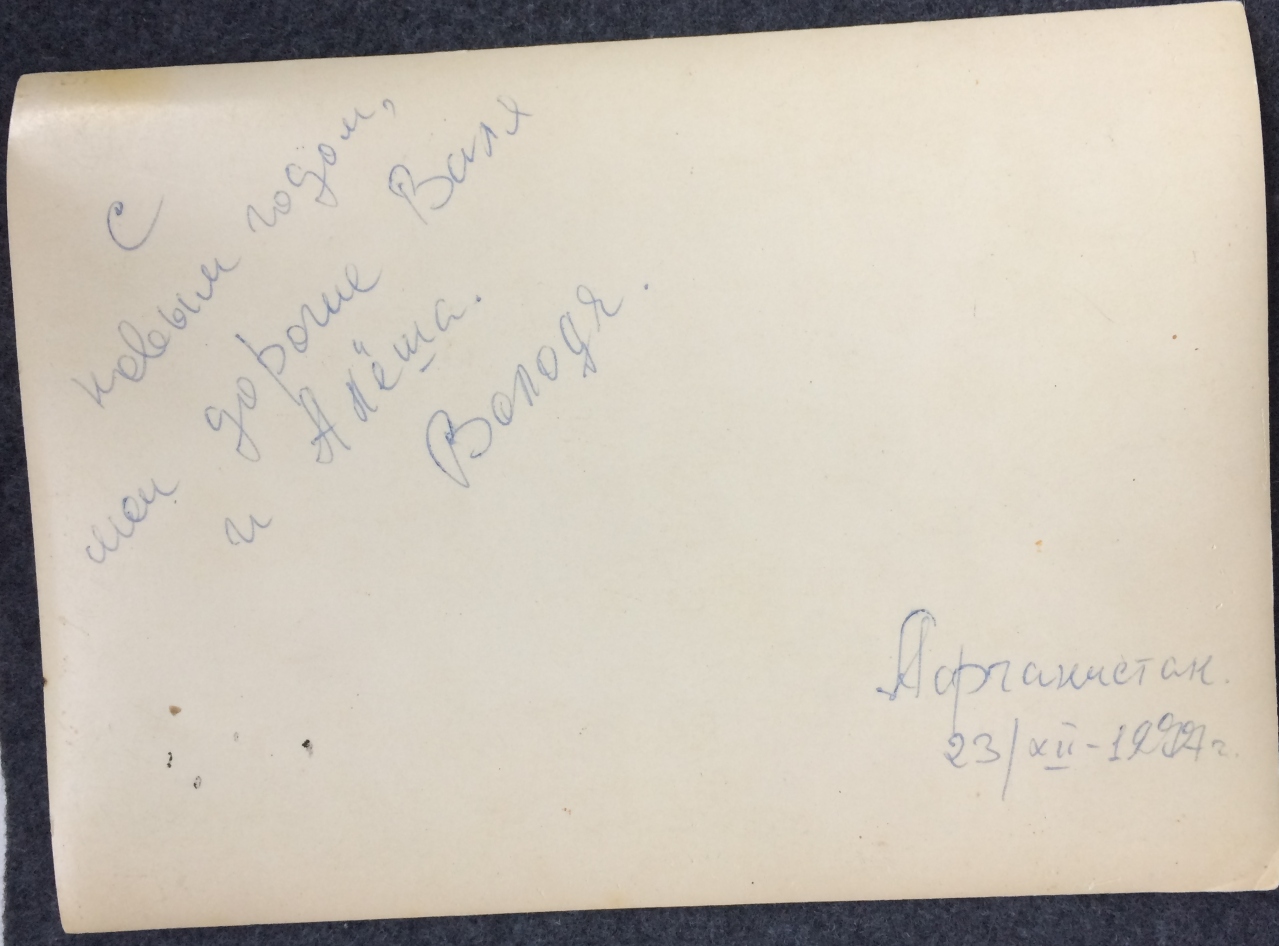 С
новым годом,
мои дорогие Валя
и Алёша.
Володя.
Афганистан.
23/XII-